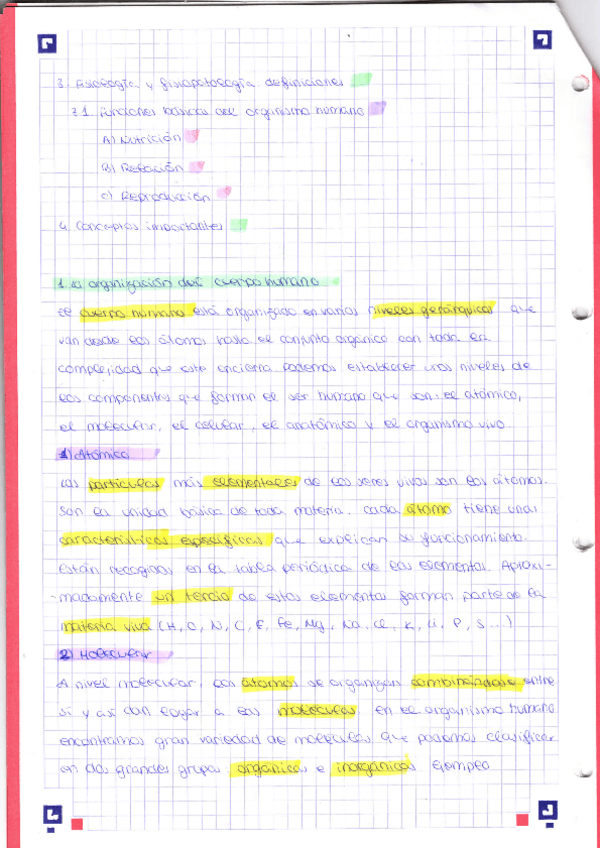 3. Fisiología y fisiopatología definiciones
3.1. Funciones básicas del organismo humano
A) Nutrición
B) Relación
C) Reproducción
4. Conceptos importantes
1. La organización del cuerpo humano
El cuerpo humano está organizado en varios niveles jerárquicos que
van desde los átomos hasta el conjunto orgánico con toda la
complejidad que este encierra. Podemos establecer unos niveles de
los componentes que forman el ser humano que son: el atómico,
el molecular, el celular, el anatómico y el organismo vivo.
1) Atómico
Las partículas más elementales de los seres vivos son los átomos.
Son la unidad básica de toda materia. Cada átomo tiene unas
características específicas que explican su funcionamiento.
Están recogidos en la tabla periódica de los elementos. Aproxi-
-madamente un tercio de estos elementos forman parte de la
materia viva (H, O, N, C, F, Fe, Mg, Na, Cl, K, Li, P, S...)
2) Molecular
A nivel molecular, los átomos se organizan combinándose entre
sí y así dan lugar a las moléculas. en el organismo humano
encontramos gran variedad de moléculas que podemos clasificar
en dos grandes grupos orgánicas e inorgánicas Ejemplo